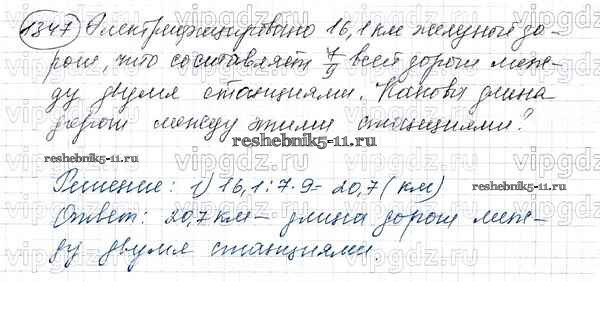 1347 Электрифицировано 16,1 км железной до-
роги, что составляет 7/9 всей дороги меж-
ду двумя станциями. Какова длина
дороги между этими станциями?
reshebnik5-11.ru
reshebnik5-11.ru
reshebnik5-11.ru
Решение: 1) 16,1:7·9=20,7 (км)
Ответ: 20,7 км – длина дороги меж-
ду двумя станциями.